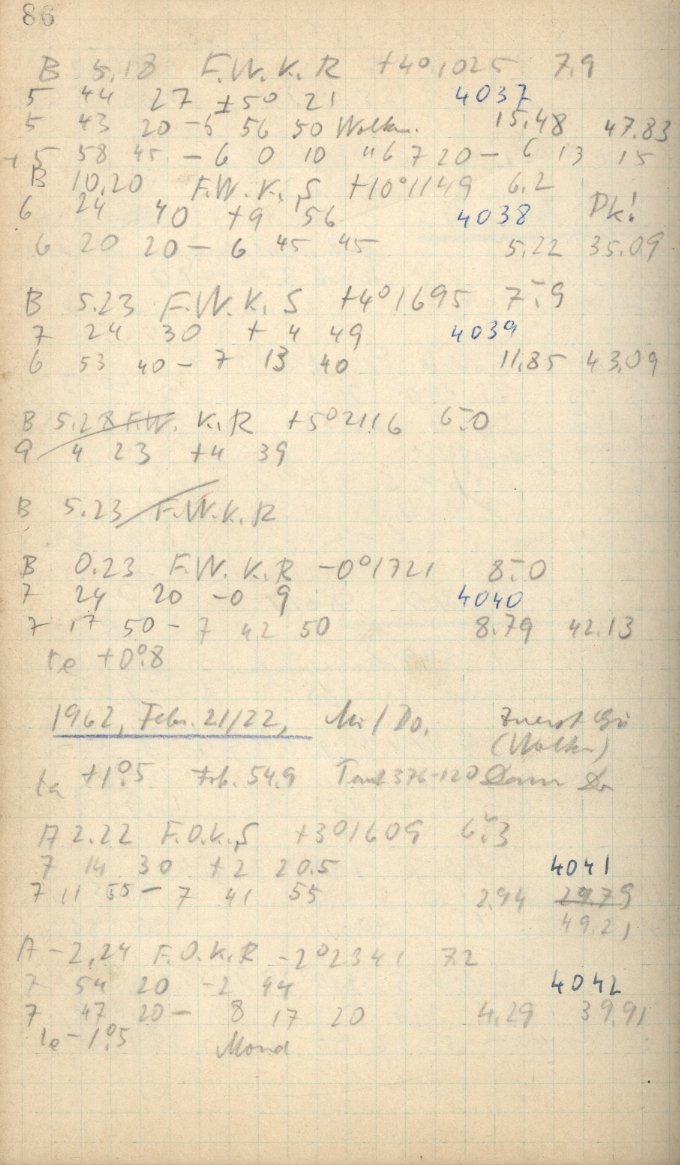 86
B 5.18 F.W.K.R +4°1025 7.9
5 44 27 +5° 21 4037
5 43 20 - 5 56 50 Wolken. 15.48 47.83
+ 5 58 45 - 6 0 10 6 7 20 - 6 13 15
B 10.20 F.W.K.S +10°1149 6.2
6 24 40 +9 56 4038 Pk!
6 20 20 - 6 45 45 5.22 35.09
B 5.23 F.W.K.S +4°1695 7.9
7 24 30 + 4 49 4039
6 53 40 - 7 13 40 11.85 43.09
B 5.28 F.W. K.R +5°2116 6.0
9 4 23 +4 39
B 5.23 F.W.K.R
B 0.23 F.W.K.R -0°1721 8.0
7 24 20 -0 9 4040
7 17 50 - 7 42 50 8.79 42.13
te +0°.8
1962, Febr. 21/22, Mi/Do. Zuerst
(Wolken)
ta +1°.5 54.9 376-120 Dann
A 2.22 F.O.K.S +3°1609 6.3
7 14 30 +2 20.5 4041
7 11 55 - 7 41 55 2.94 29.79
49.21
A -2.24 F.O.K.R -2°2341 7.2
7 54 20 -2 44 4042
7 47 20 - 8 17 20 4.29 39.91
te -1°.5 Mond